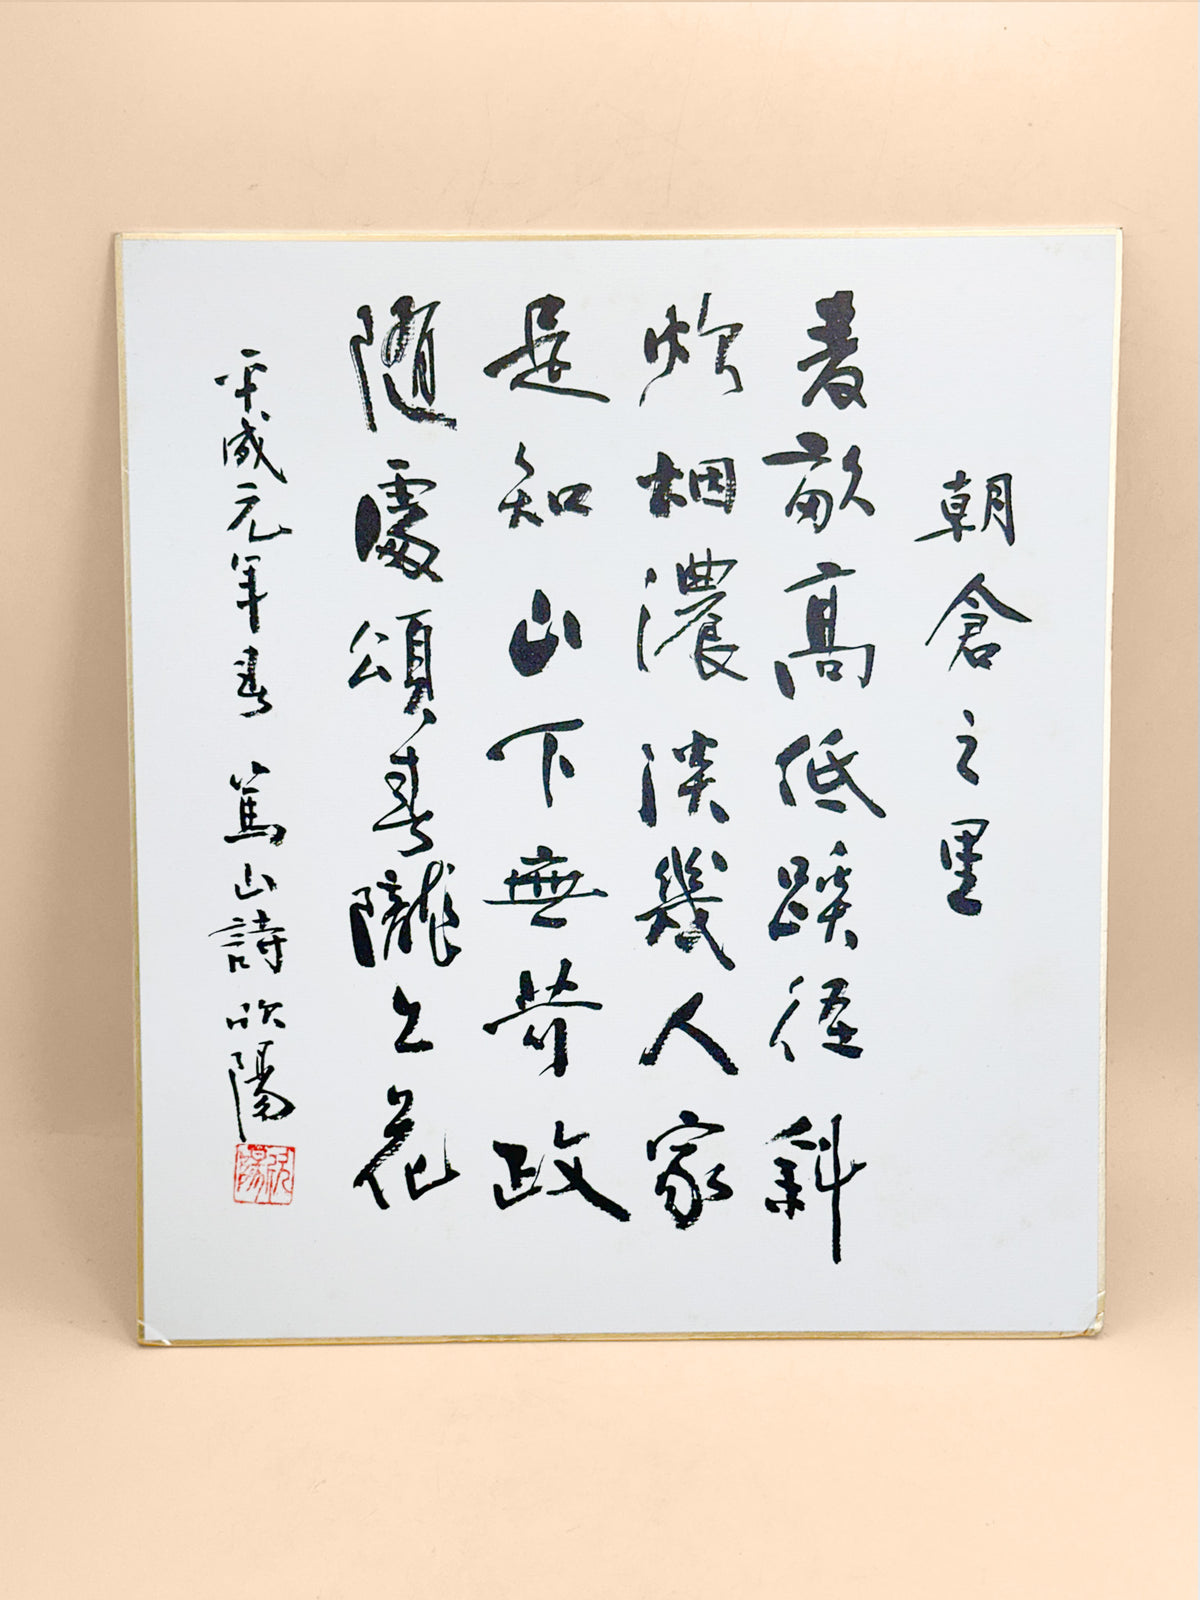 朝倉之里
麦畝高低蹊径斜
炊烟濃淡幾人家
是知山下無苛政
随處頌春隴上花
平成元年春 篤山詩 欣陽
欣陽